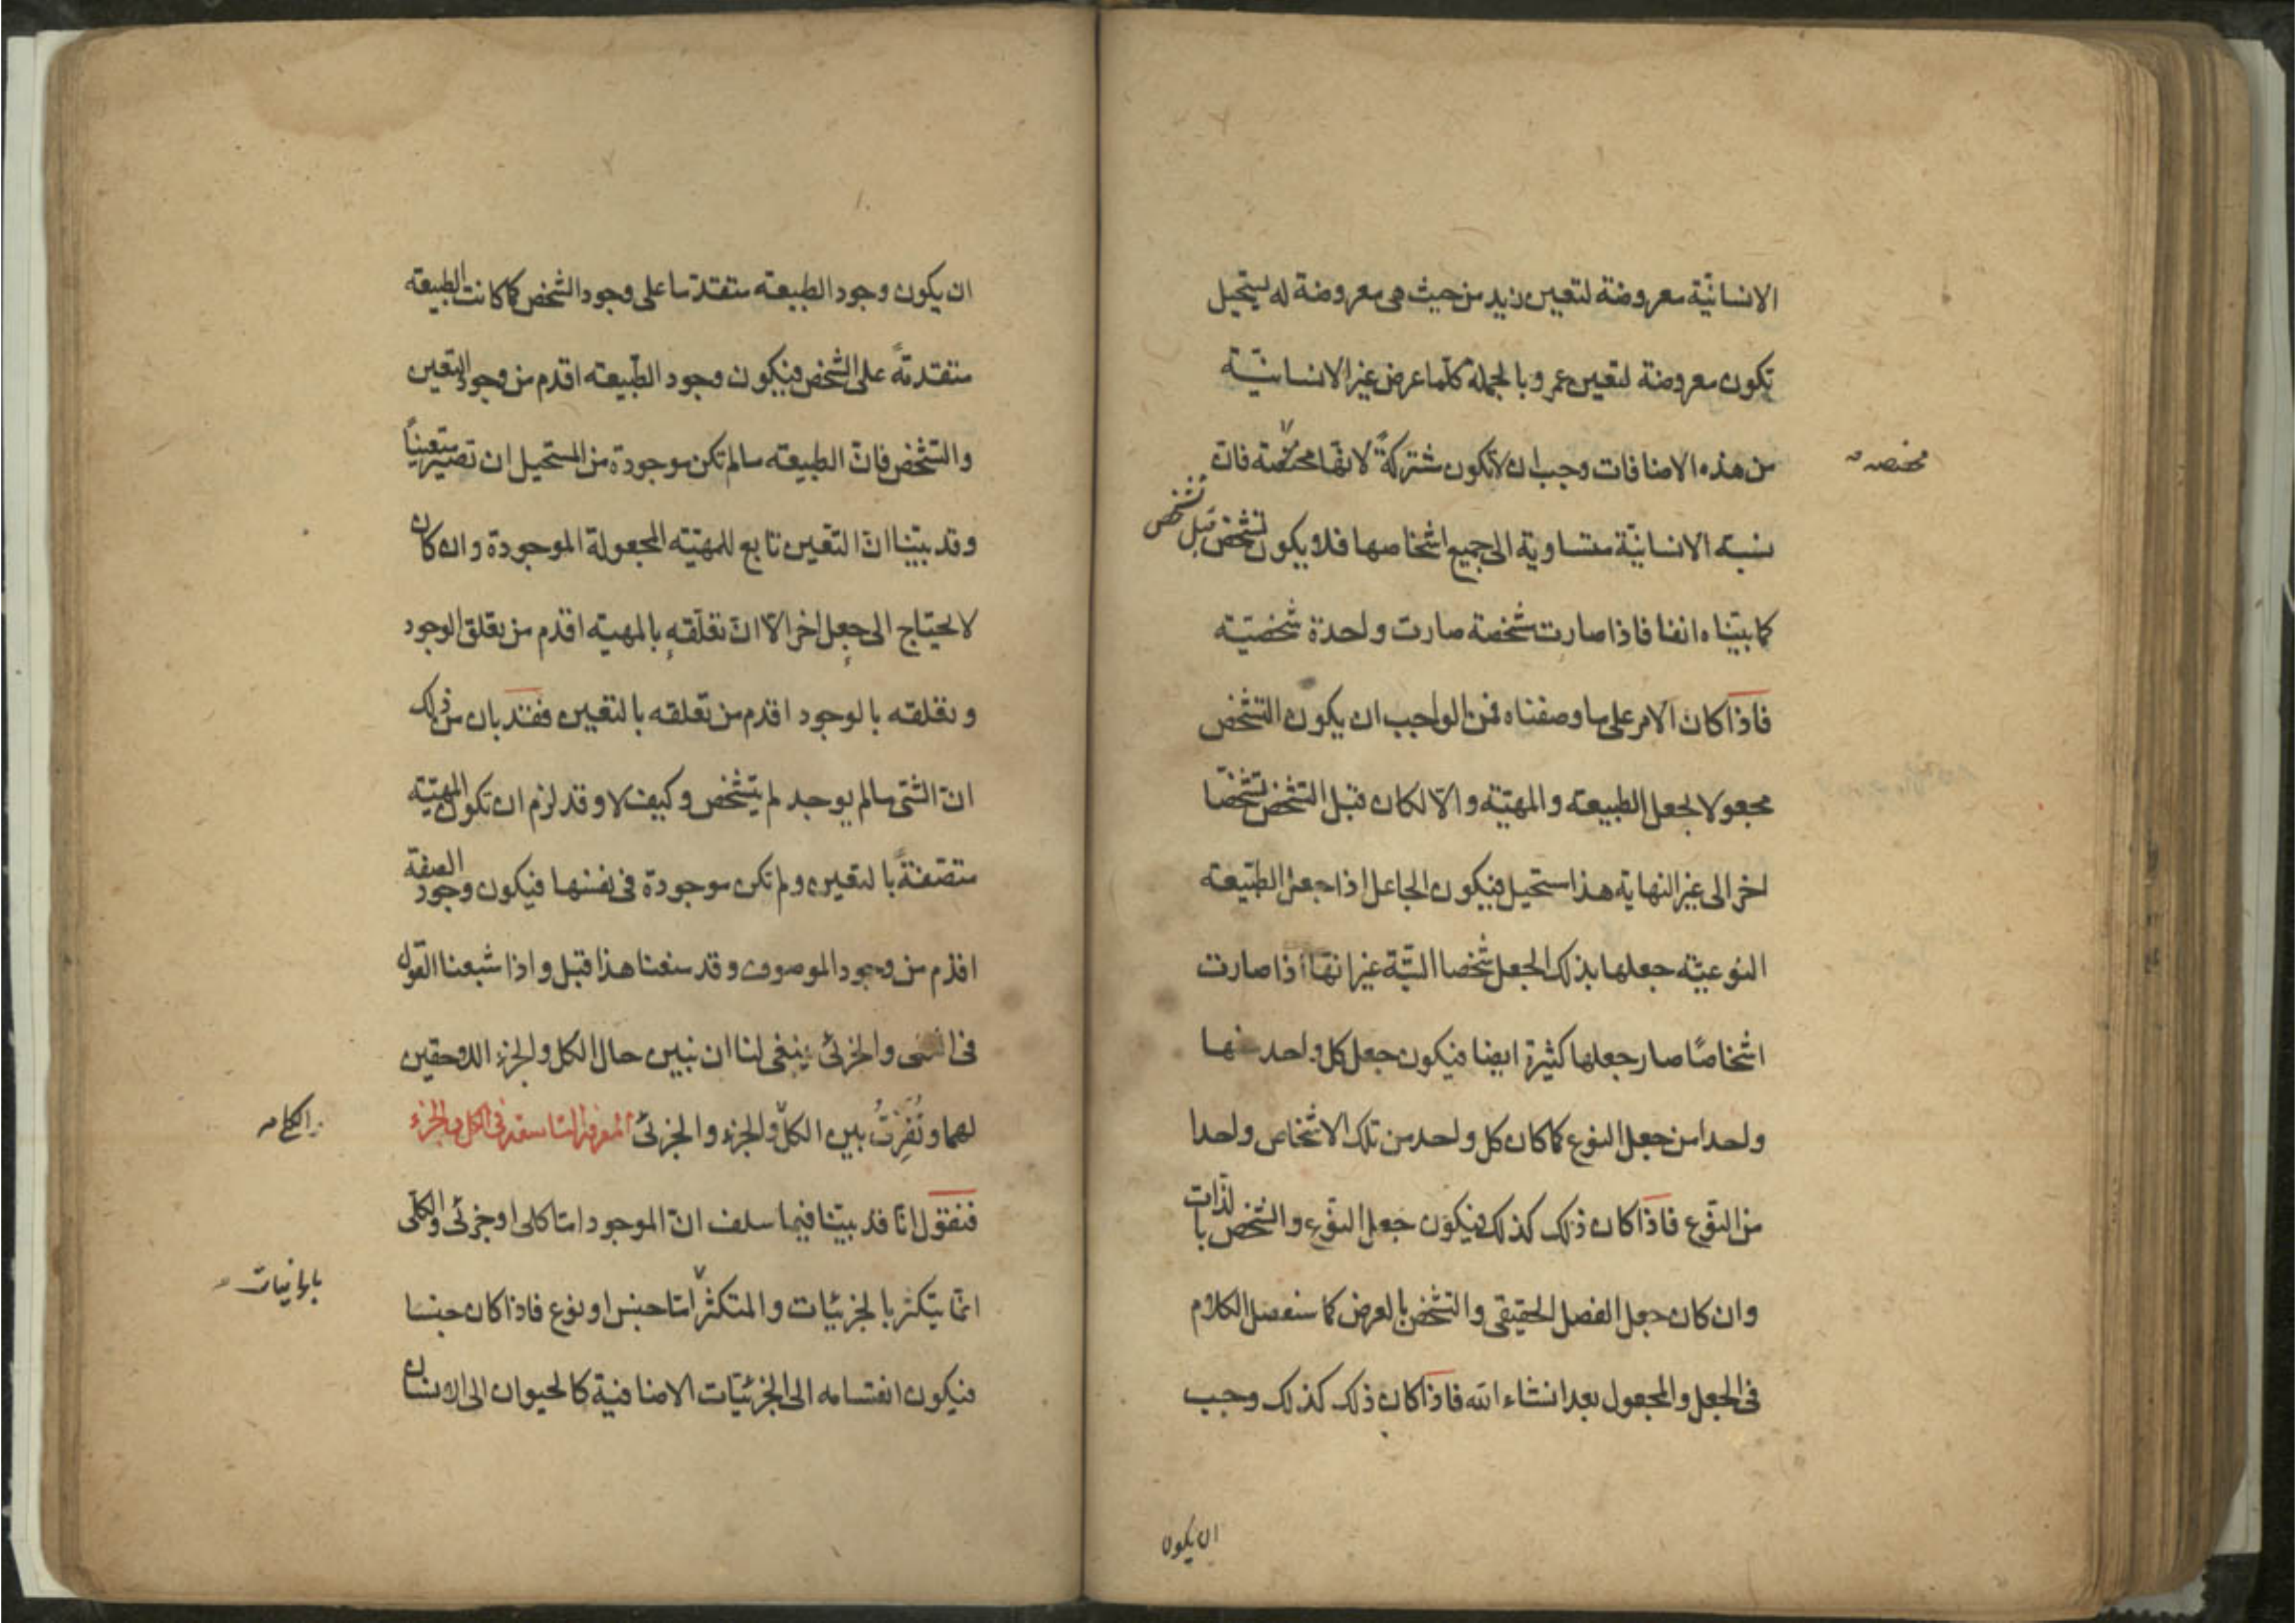 الانسانيّة معروضة لتعين زيد من حيث هى معروضة له يستحيل
تكون معروضة لتعين عمرو بالجملة كلما عرض غير الانسانيّة
من هذه الاضافات وجب ان لاتكون مشتركةً لانها مختصّة فانّ
مختصه
نسبة الانسانيّة متساوية الى جميع اشخاصها فلا يكون تشخص قبل تشخص
كما بيّناه انفا فاذا صارت شخصة صارت واحدة شخصيّة
فاذا كان الامر على ما وصفناه فمن الواجب ان يكون التشخص
مجعولا لجعل الطبيعة والمهيّة والّا لكان قبل التشخص تشخصا
اخر الى غير النهاية هذا مستحيل فيكون الجاعل اذا جعل الطبيعة
النوعيّة جعلها بذلك الجعل شخصا البتّة غير انها اذا صارت
اشخاصًا صار جعلها كثيرة ايضا فيكون جعل كل واحد منها
واحدا من جعل النوع كما كان كل واحد من تلك الاشخاص واحدا
من النوع فاذا كان ذلك كذلك فيكون جعل النوع والشخص بالذات
وان كان جعل الفصل الحقيقى والتشخص بالعرض كما سنفصل الكلام
فى الجعل والمجعول بعد انشاء الله فاذا كان ذلك كذلك وجب
ان يكون
ان يكون وجود الطبيعة متقدّما على وجود الشخص كما كانت الطبيعة
متقدمةً على الشخص فيكون وجود الطبيعة اقدم من وجود التعين
والتشخص فانّ الطبيعة مالم تكن موجودة من المستحيل ان تصير متعينًا
وقد بيّنا انّ التعين تابع للمهيّة المجعولة الموجودة وان كان
لا يحتاج الى جعل اخر الّا انّ تعلّقه بالمهية اقدم من تعلق الوجود
وتعلقه بالوجود اقدم من تعلقه بالتعين فقد بان من ذلك
انّ الشئ مالم يوجد لم يتشخص وكيف لا وقد لزم ان تكون المهيّة
متصفةً بالتعين ولم تكن موجودة فى نفسها فيكون وجود الصفة
اقدم من وجود الموصوف وقد منعنا هذا قبل واذا شبعنا القول
فى والجزئى ينبغى لنا ان نبين حال الكل والجزء اللاحقين
لهما ونُفَرِّقُ بين الكلّ والجزء والجزئى فى الكل والجزء
فنقول انّا قد بيّنا فيما سلف انّ الموجود امّا كلى او جزئى والكلّى
انّما يتكثر بالجزئيّات والمتكثر امّا جنس او نوع فاذا كان جنسا
فيكون انقسامه الى الجزئيّات الاضافية كالحيوان الى الانسان